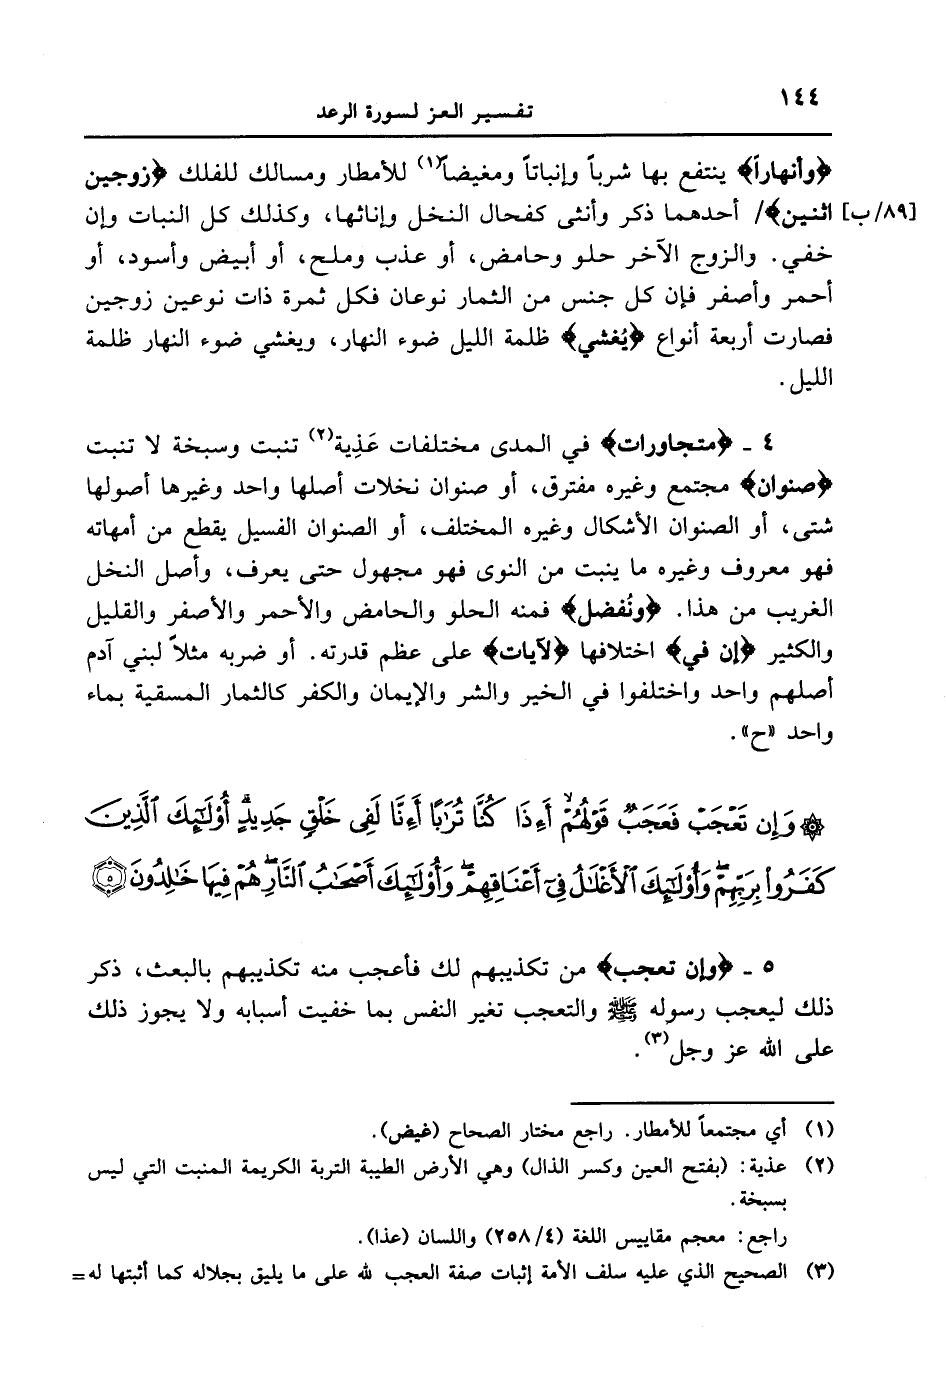 ١٤٤
تفسير العز لسورة الرعد
﴿وأنهاراً﴾ ينتفع بها شرباً وإنباتاً ومغيضاً(١) للأمطار ومسالك للفلك ﴿زوجين
[٨٩/ب] اثنين﴾/ أحدهما ذكر وأنثى كفحال النخل وإناثها، وكذلك كل النبات وإن
خفي. والزوج الآخر حلو وحامض، أو عذب وملح، أو أبيض وأسود، أو
أحمر وأصفر فإن كل جنس من الثمار نوعان فكل ثمرة ذات نوعين زوجين
فصارت أربعة أنواع ﴿يُغشي﴾ ظلمة الليل ضوء النهار، ويغشي ضوء النهار ظلمة
الليل.
٤ ـ ﴿متجاورات﴾ في المدى مختلفات عَذِية(٢) تنبت وسبخة لا تنبت
﴿صنوان﴾ مجتمع وغيره مفترق، أو صنوان نخلات أصلها واحد وغيرها أصولها
شتى، أو الصنوان الأشكال وغيره المختلف، أو الصنوان الفسيل يقطع من أمهاته
فهو معروف وغيره ما ينبت من النوى فهو مجهول حتى يعرف، وأصل النخل
الغريب من هذا. ﴿ونُفضل﴾ فمنه الحلو والحامض والأحمر والأصفر والقليل
والكثير ﴿إن في﴾ اختلافها ﴿لآيات﴾ على عظم قدرته. أو ضربه مثلاً لبني آدم
أصلهم واحد واختلفوا في الخير والشر والإيمان والكفر كالثمار المسقية بماء
واحد «ح».
۞ وَإِن تَعْجَبْ فَعَجَبٌ قَوْلُهُمْ أَءِذَا كُنَّا تُرَٰبًا أَءِنَّا لَفِى خَلْقٍ جَدِيدٍ أُوْلَٰٓئِكَ ٱلَّذِينَ
كَفَرُواْ بِرَبِّهِمْ وَأُوْلَٰٓئِكَ ٱلْأَغْلَٰلُ فِىٓ أَعْنَاقِهِمْ وَأُوْلَٰٓئِكَ أَصْحَٰبُ ٱلنَّارِ هُمْ فِيهَا خَٰلِدُونَ ٥
٥ ـ ﴿وإن تعجب﴾ من تكذيبهم لك فأعجب منه تكذيبهم بالبعث، ذكر
ذلك ليعجب رسوله ﷺ والتعجب تغير النفس بما خفيت أسبابه ولا يجوز ذلك
على الله عز وجل(٣).
(١) أي مجتمعاً للأمطار. راجع مختار الصحاح (غيض).
(٢) عذية: (بفتح العين وكسر الذال) وهي الأرض الطيبة التربة الكريمة المنبت التي ليس
بسبخة.
راجع: معجم مقاييس اللغة (٢٥٨/٤) واللسان (عذا).
(٣) الصحيح الذي عليه سلف الأمة إثبات صفة العجب لله على ما يليق بجلاله كما أثبتها له=